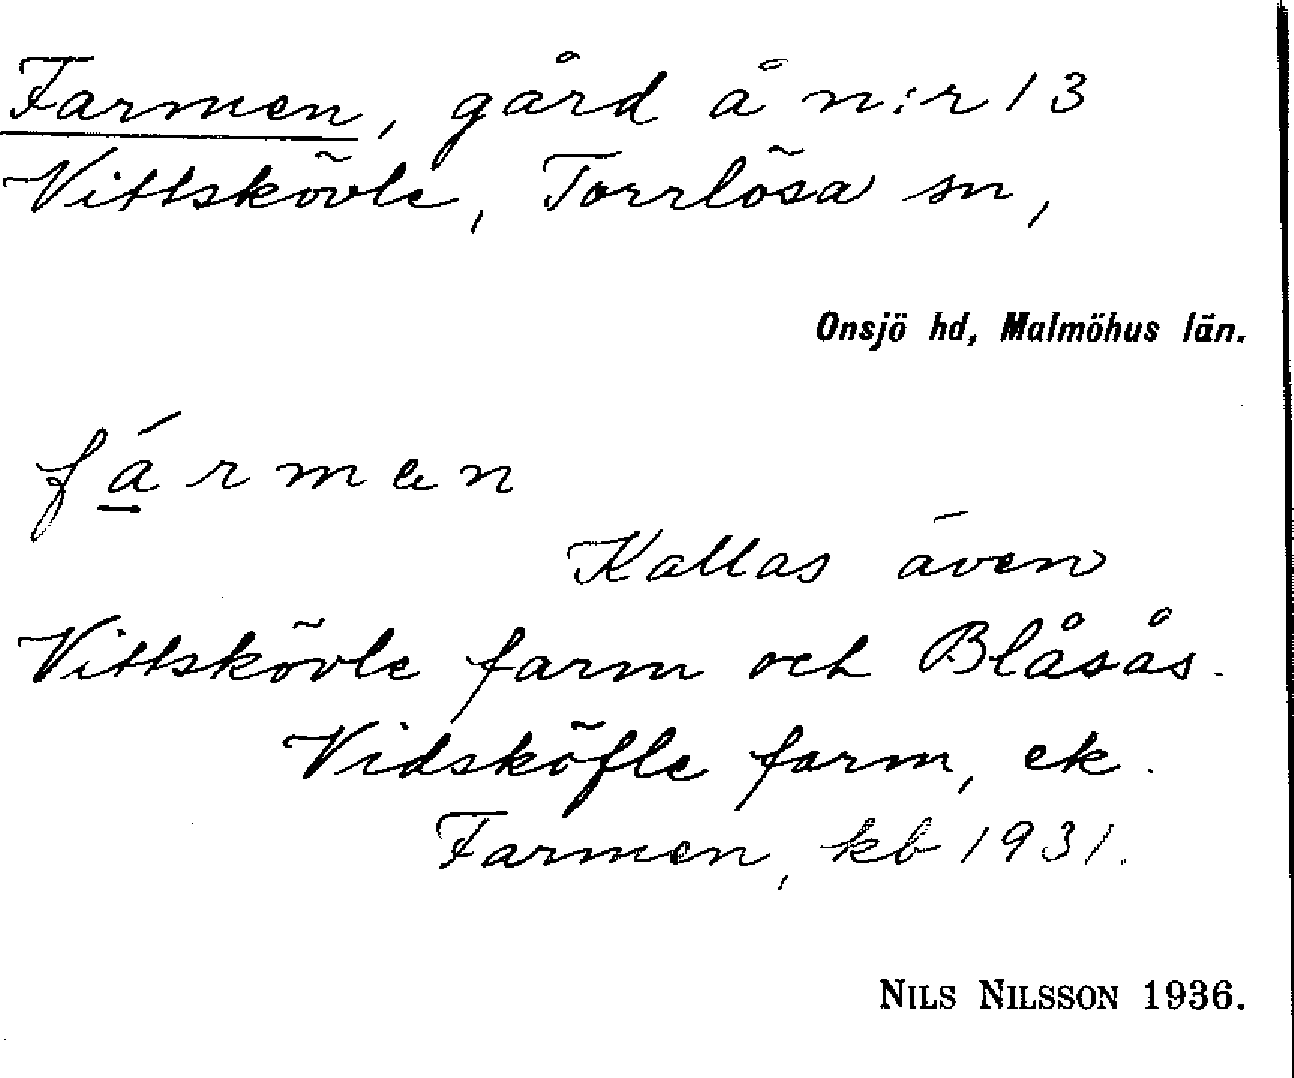 Farmen, gård å n:r 13
Vittskövle, Torrlösa sn,
Onsjö hd, Malmöhus län.
fá̱rmen
Kallas även
Vittskövle farm och Blåsås.
Vidsköfle farm, ek.
Farmen, kb 1931.
NILS NILSSON 1936.